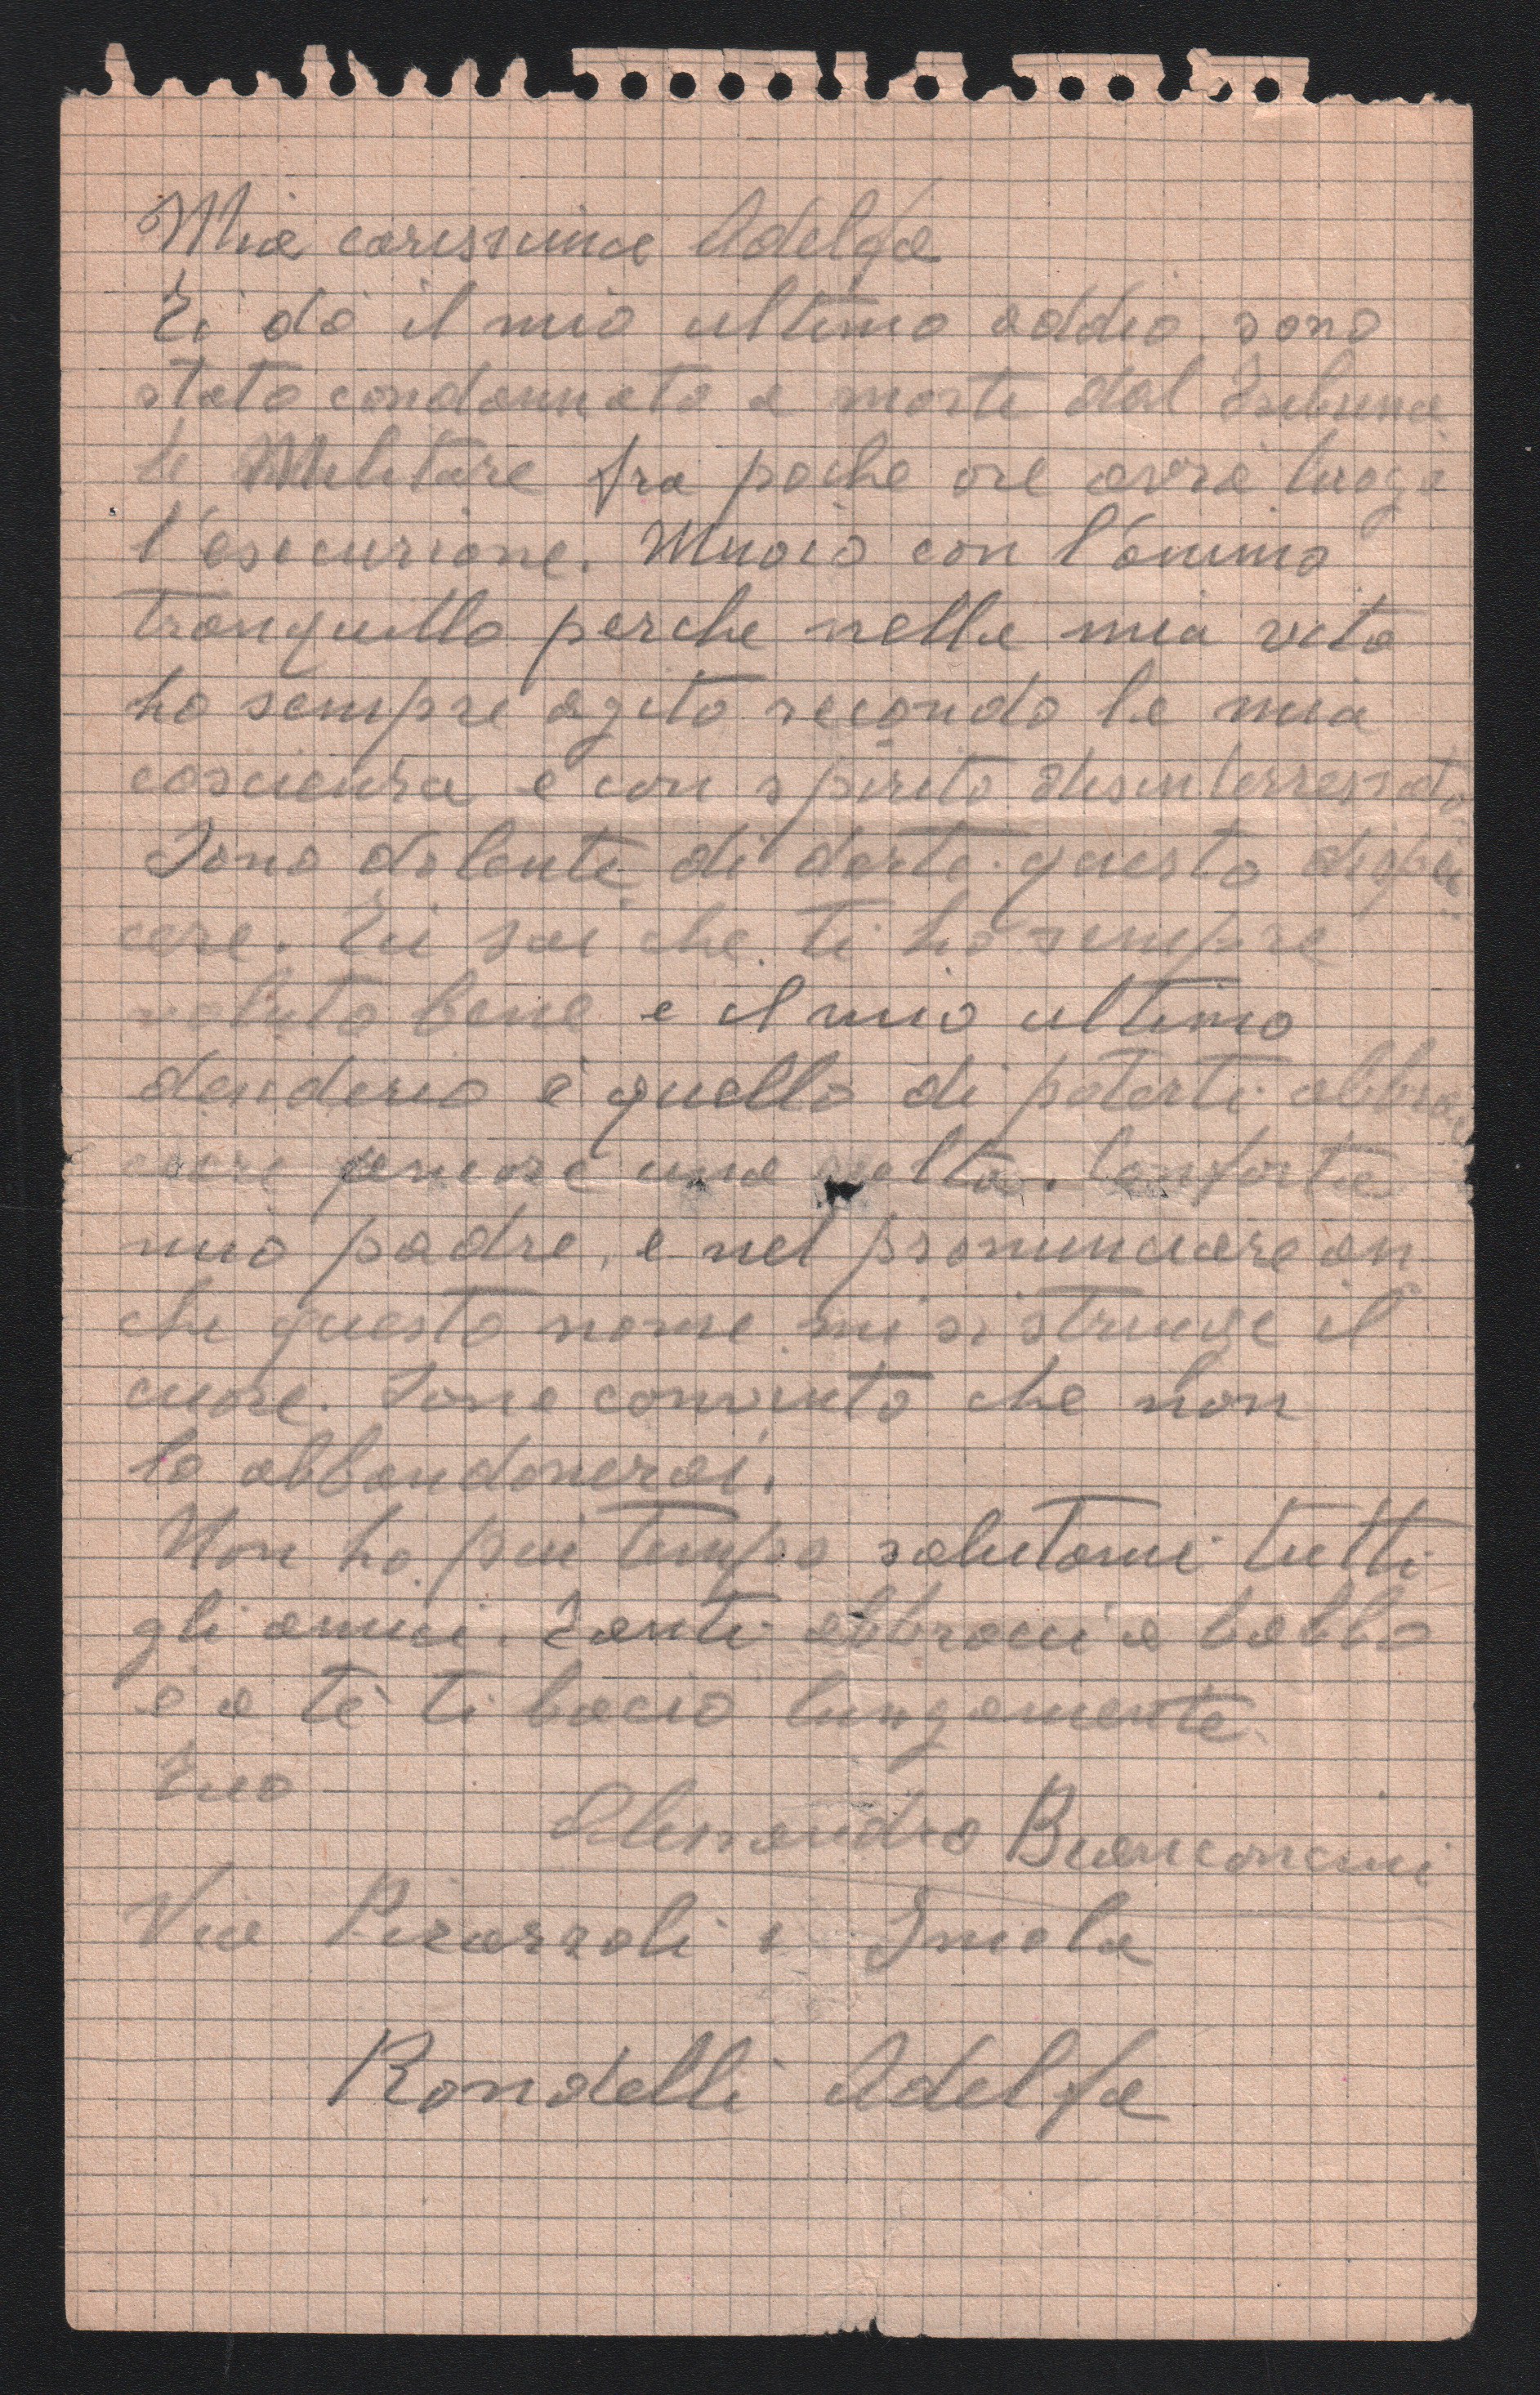 Mia carissima Adelfa
Ti dò il mio ultimo addio, sono
stato condannato a morte dal Tribuna
le Militare fra poche ore avrà luogo
l'esecuzione. Muoio con l'animo
tranquillo perche nella mia vita
ho sempre agito secondo la mia
coscienza e con spirito disinterressato.
Sono dolente di darti questo dispia
cere. Tu sai che ti ho sempre
voluto bene e il mio ultimo
desiderio è quello di poterti abbrac
ciare ancora una volta. Conforta
mio padre, e nel pronunciare an
che questo nome mi si stringe il
cuore. Sono convinto che non
lo abbandonerai.
Non ho più tempo salutami tutti
gli amici. Tanti abbracci a babbo
e a te ti bacio lungamente
Tuo
Alessandro Bianconcini
Via Pirazzoli 1 Imola
Rondelli Adelfa